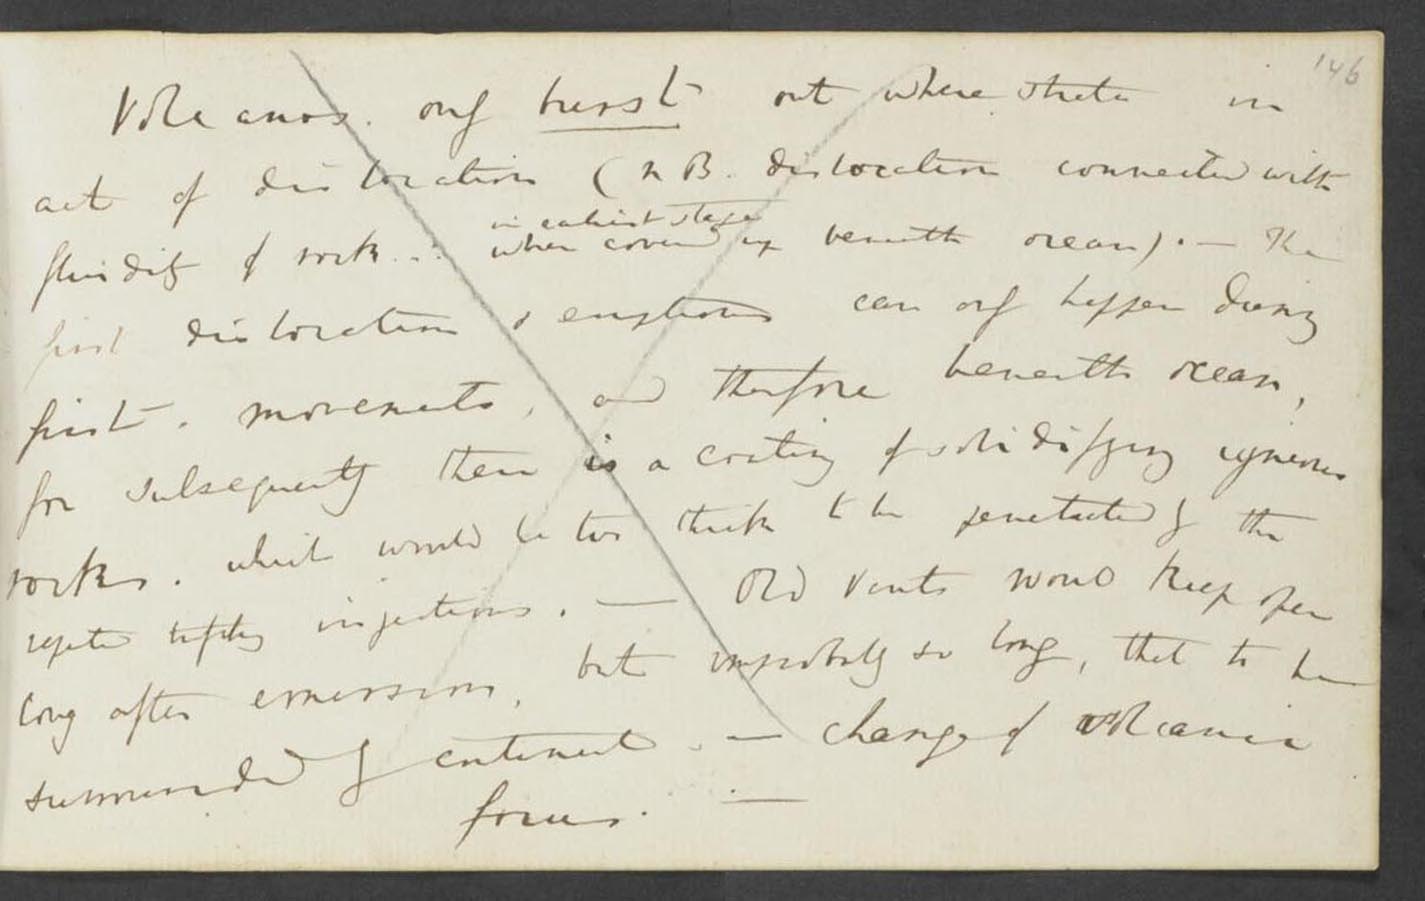 146
Volcanos. only burst out where strata in
act of dislocation (NB. dislocation connected with
fluidity of rock.∴ in earliest stage
when covered up beneath ocean).— The
first dislocation & eruptions can only happen during
first. movements, and therefore beneath ocean,
for subsequently there is a coating of solidifying igneous
rocks. which would be too thick to be penetrated by the
repeated injections.— Old vents would keep open
long after emersion, but improbably so long, that to be
surrounded by continent.— change of volcanic
focus.—